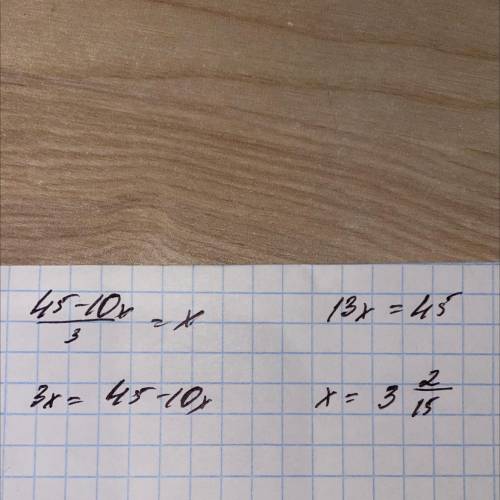 45-10x
3
= x
3x = 45-10x
13x = 45
x = 3 2/15